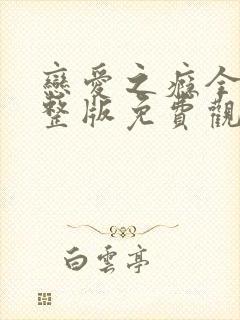 戀愛之癡全
整版免費觀
白雲亭